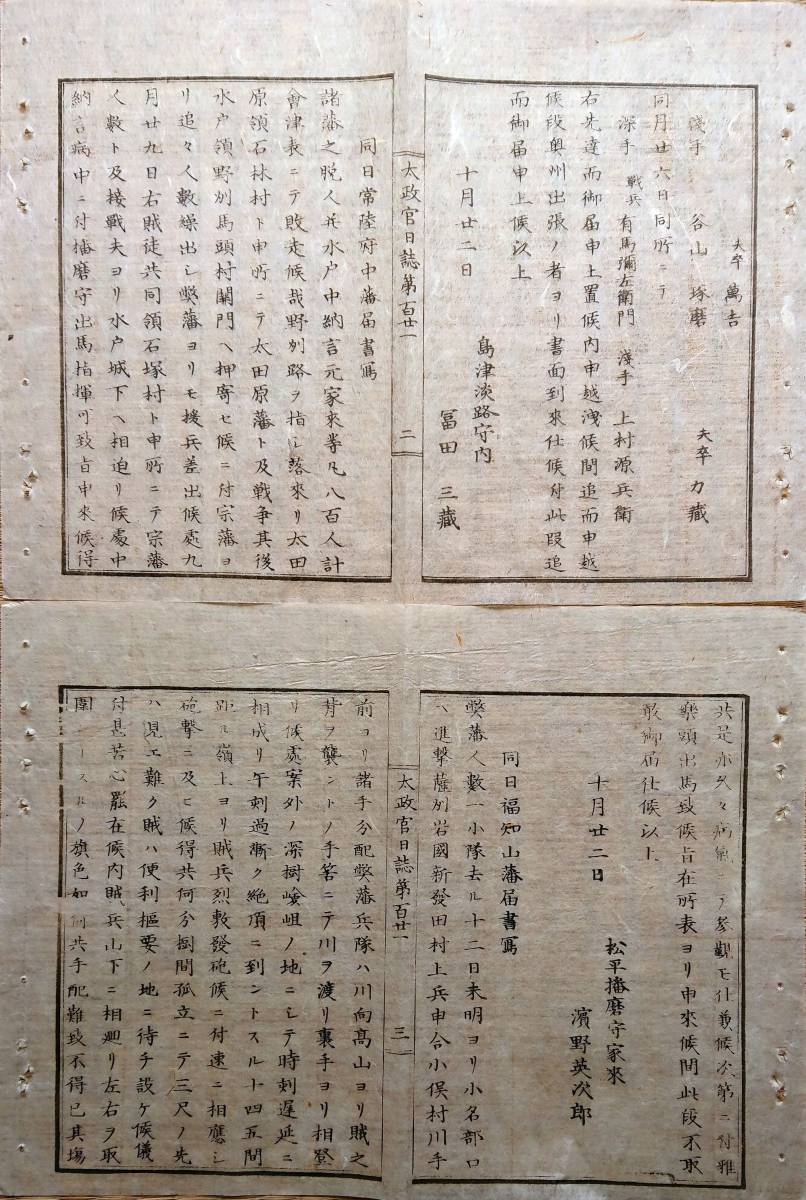 夫卒 萬吉
淺手 谷山琢磨 夫卒 力藏
同月廿六日同所ニテ
深手 戰兵 有馬彌左衛門 淺手 上村源兵衛
右先達而御届申上置候内申越洩候間追而申越
候段奥州出張ノ者ヨリ書面到來仕候付此段追
而御届申上候以上
十月廿二日
島津淡路守内
冨田三藏
太政官日誌第百廿一
二
同日常陸府中藩届書寫
諸藩之脱人并水户中納言元家來等凡八百人計
會津表ニテ敗走候哉野州路ヲ指シ落來リ太田
原領石林村ト申所ニテ太田原藩ト及戦争其後
水户領野州馬頭村關門ヘ押寄セ候ニ付宗藩ヨ
リ追々人數繰出シ弊藩ヨリモ援兵差出候處九
月廿九日右賊徒共同領石塚村ト申所ニテ宗藩
人數ト及接戰夫ヨリ水户城下ヘ相迫リ候處中
納言病中ニ付播磨守出馬指揮可致旨申來候得
共是亦久々病氣ニテ參觀モ仕兼候次第ニ付雅
樂頭出馬致候旨在所表ヨリ申來候間此段不取
敢御届仕候以上
十月廿二日
松平播磨守家來
濱野英次郎
同日福知山藩届書寫
弊藩人數一小隊去ル十二日未明ヨリ小名部口
ヘ進撃薩州岩國新發田村上兵申合小俣村川手
太政官日誌第百廿一
三
前ヨリ諸手分配弊藩兵隊ハ川向高山ヨリ賊之
背ヲ襲ントノ手筈ニテ川ヲ渡リ裏手ヨリ相登
リ候處案外ノ深樹嶮岨ノ地ニシテ時刻遅延ニ
相成リ午刻過漸ク絶頂ニ到ントスル十四五間
距ル嶺上ヨリ賊兵烈敷發砲候ニ付速ニ相應シ
砲撃ニ及ヒ候得共何分樹間孤立ニテ三尺ノ先
ハ見エ難ク賊ハ便利樞要ノ地ニ待チ設ケ候儀
付甚苦心罷在候内賊兵山下ニ相廻リ左右ヲ取
圍ントスルノ旗色如何共手配難致不得已其場